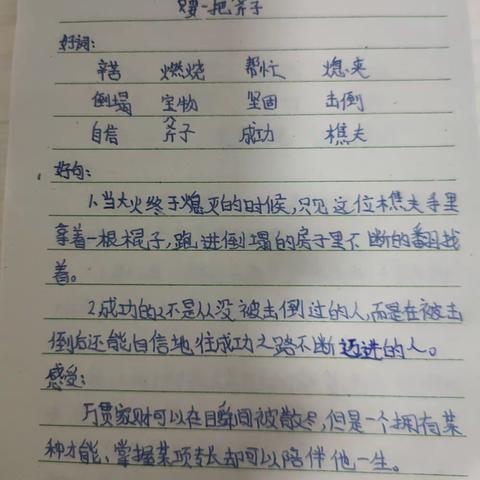 只要一把斧子
好词:
辛苦 燃烧 帮忙 熄灭
倒塌 宝物 坚固 击倒
自信 斧子 成功 樵夫
好句:
1.当大火终于熄灭的时候,只见这位樵夫手里
拿着一根棍子,跑进倒塌的房子里不断的翻找
着。
2.成功的不是从没被击倒过的人,而是在被击
倒后还能自信地往成功之路不断迈进的人。
感受:
万贯家财可以在瞬间被散尽,但是一个拥有某
种才能、掌握某项专长却可以陪伴他一生。